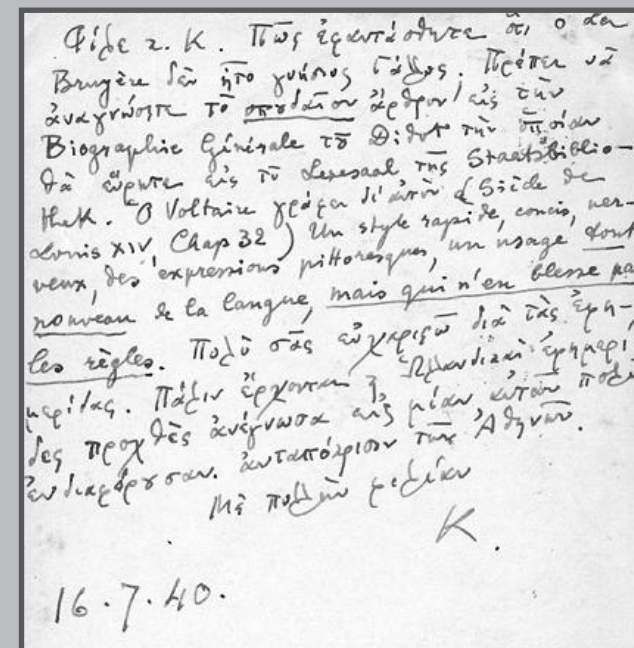 Φίλε κ. Κ. Πῶς ἐφαντάσθητε ὅτι ὁ La
Bruyère δὲν ἦτο γνήσιος Γάλλος. Πρέπει νὰ
ἀναγνώσητε τὸ σπουδαῖον ἄρθρον εἰς τὴν
Biographie Générale τοῦ Didot τὴν ὁποίαν
θὰ εὕρητε εἰς τὸ Lesesaal τῆς Staatsbiblio-
thek. Ὁ Voltaire γράφει δι' αὐτὸν (Siècle de
Louis XIV Chap 32) Un style rapide, concis, ner-
veux, des expressions pittoresques, un usage tout
nouveau de la langue, mais qui n'en blesse pas
les règles. Πολὺ σᾶς εὐχαριστῶ διὰ τὰς ἐφη-
μερίδας. Πάλιν ἔρχονται Ὁλλανδικαὶ ἐφημερί
δες προχθὲς ἀνέγνωσα εἰς μίαν αὐτῶν πολὺ
ἐνδιαφέρουσαν. ἀνταπόκρισιν τῶν Ἀθηνῶν.
Μὲ πολλὴν φιλίαν
Κ.
16.7.40.